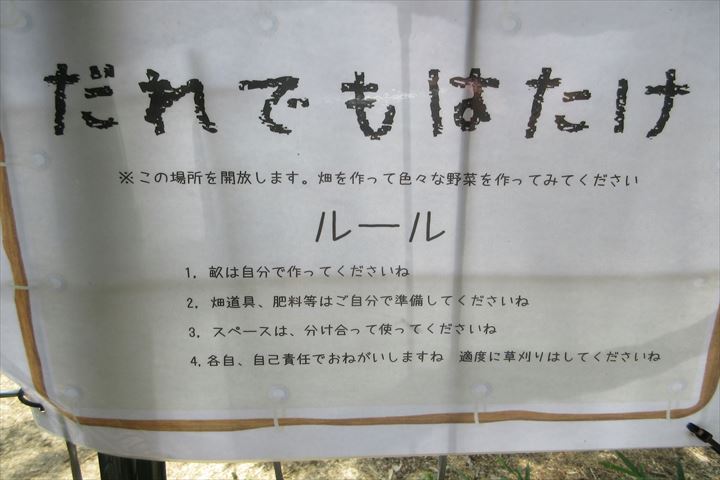 だれでもはたけ
※この場所を開放します。畑を作って色々な野菜を作ってみてください
ルール
1. 畝は自分で作ってくださいね
2. 畑道具、肥料等はご自分で準備してくださいね
3. スペースは、分け合って使ってくださいね
4. 各自、自己責任でおねがいしますね　適度に草刈りはしてくださいね